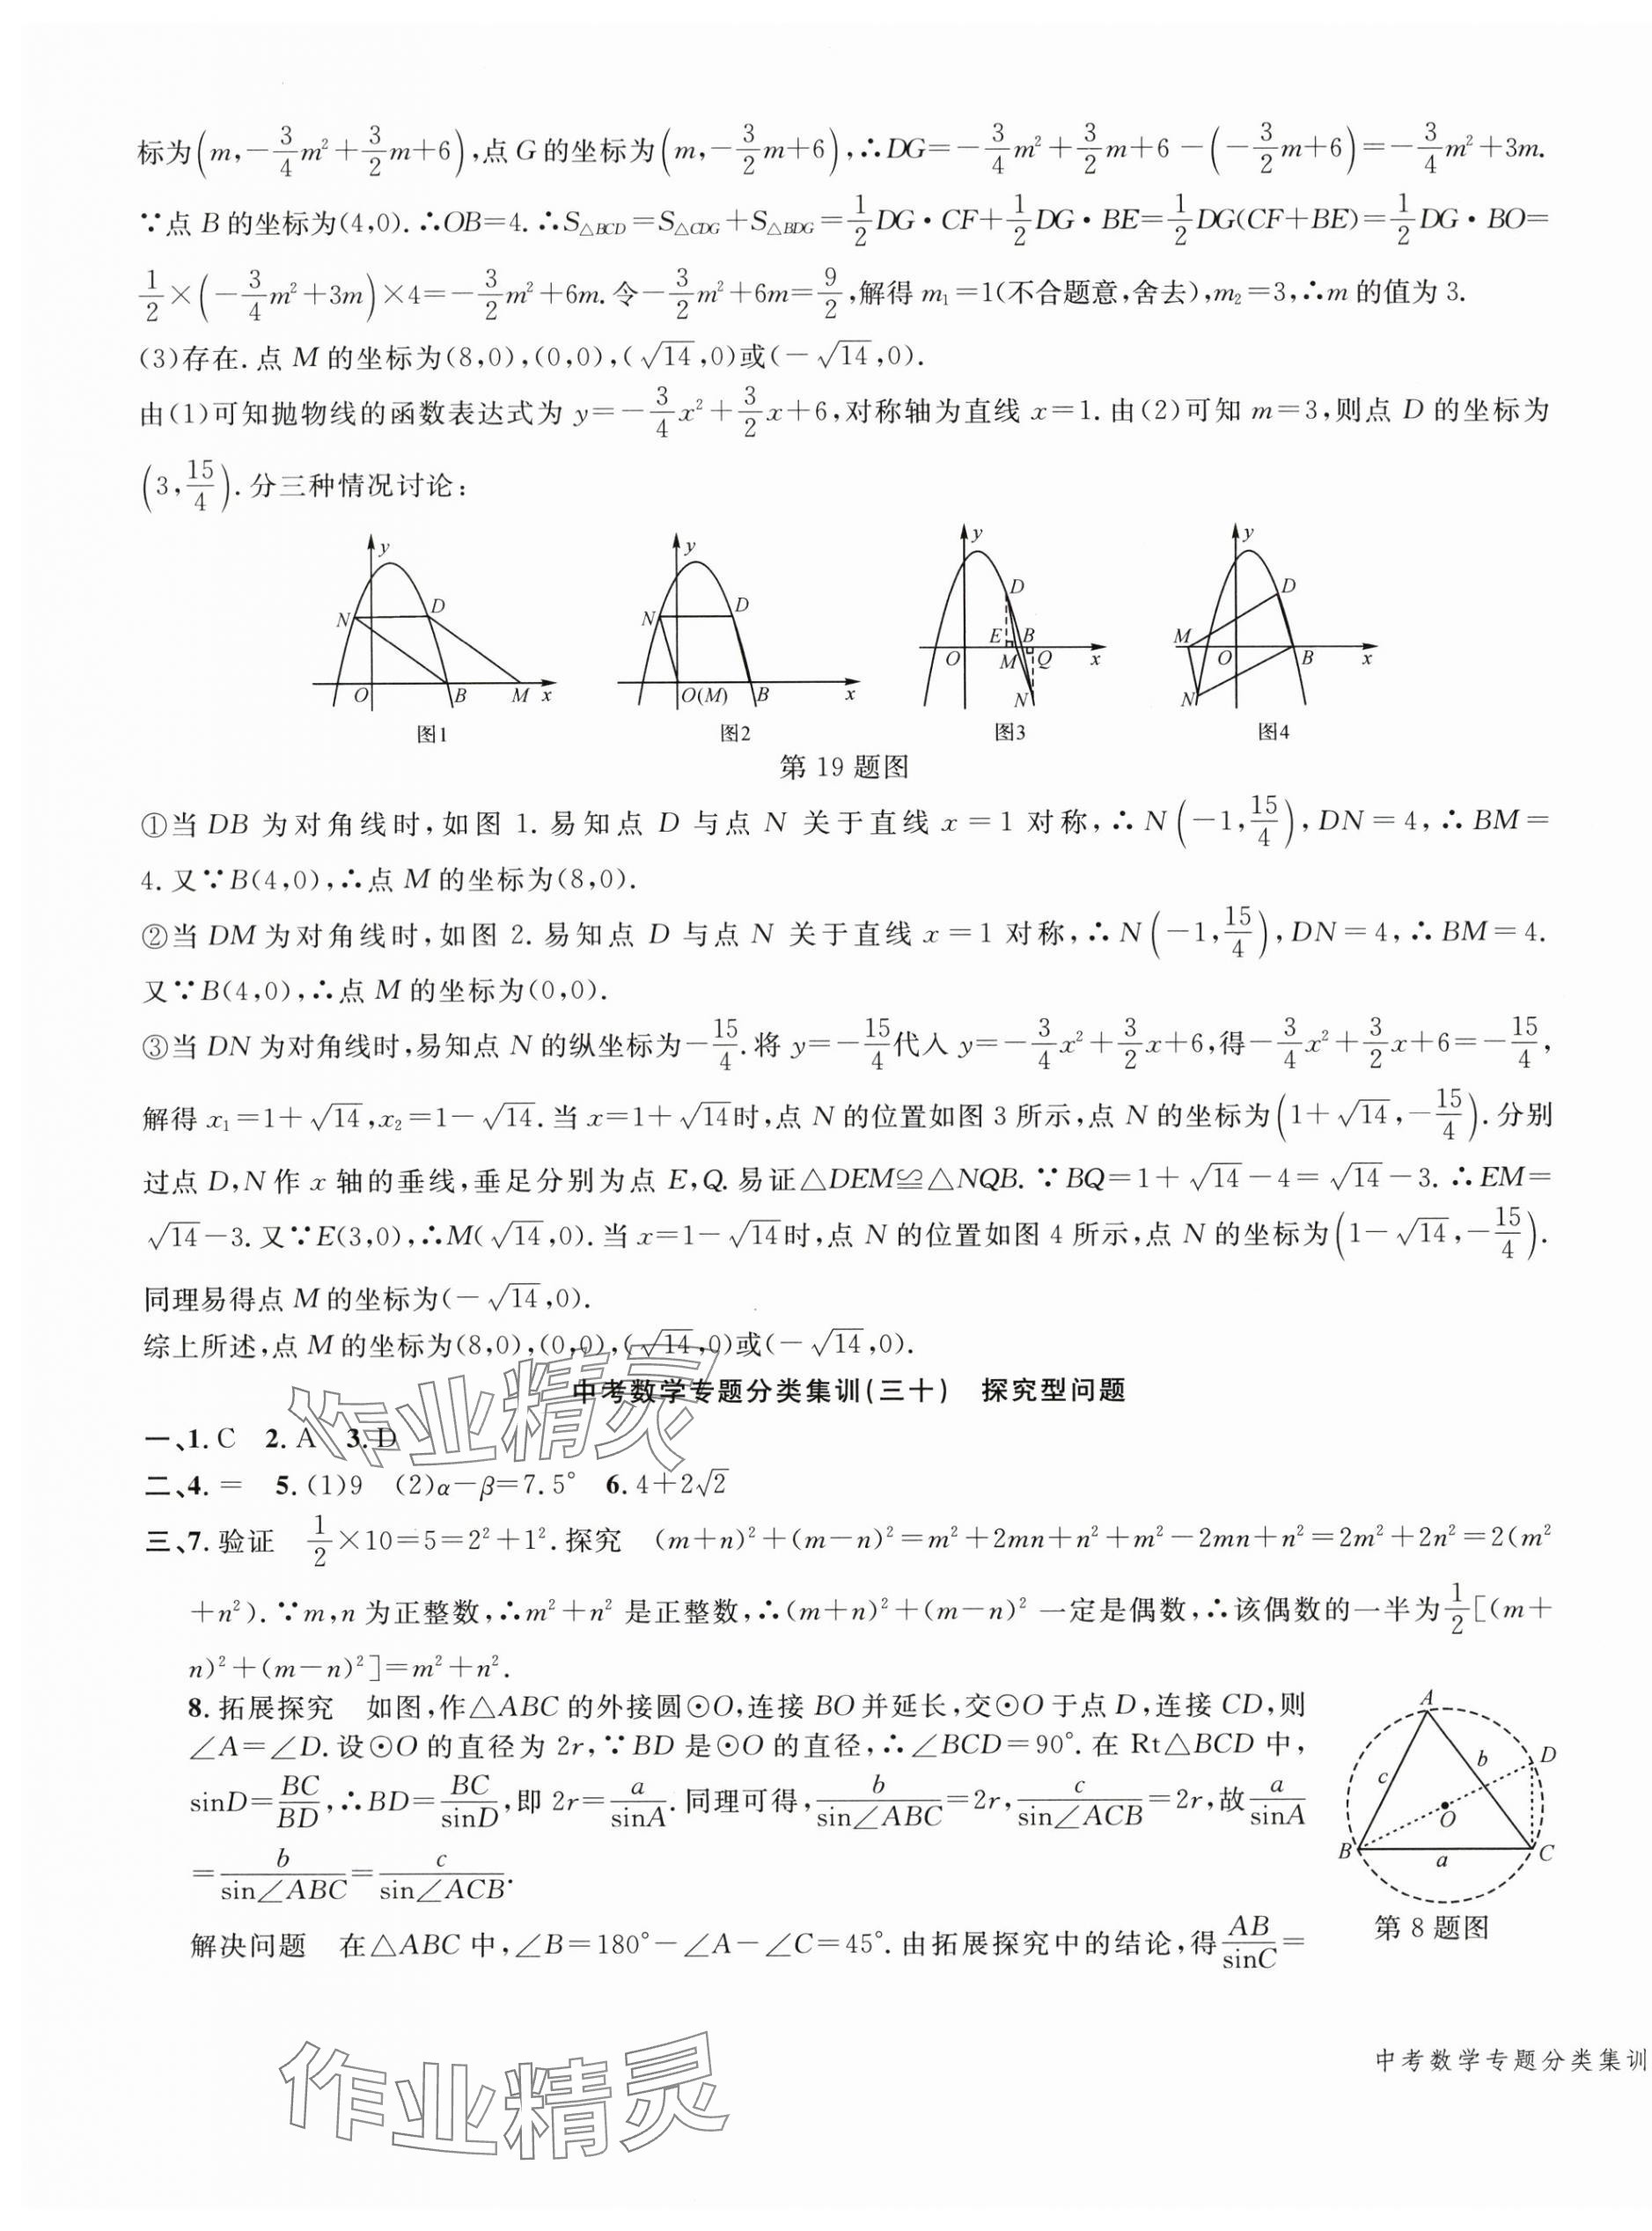 标为(m,-3/4m²+3/2m+6),点 G 的坐标为(m,-3/2m+6),∴DG=-3/4m²+3/2m+6-(-3/2m+6)=-3/4m²+3m.
∵点 B 的坐标为(4,0).∴OB=4.∴S△BCD=S△CDG+S△BDG=1/2DG·CF+1/2DG·BE=1/2DG(CF+BE)=1/2DG·BO=
1/2×(-3/4m²+3m)×4=-3/2m²+6m.令-3/2m²+6m=9/2,解得 m₁=1(不合题意,舍去),m₂=3,∴m 的值为 3.
(3)存在.点 M 的坐标为(8,0),(0,0),(√14,0)或(-√14,0).
由(1)可知抛物线的函数表达式为 y=-3/4x²+3/2x+6,对称轴为直线 x=1.由(2)可知 m=3,则点 D 的坐标为
(3,15/4).分三种情况讨论:
y N D O B M x
图1
y N D O(M) B x
图2
y D E B O M Q x N
图3
y D M O B x N
图4
第 19 题图
①当 DB 为对角线时,如图 1.易知点 D 与点 N 关于直线 x=1 对称,∴N(-1,15/4),DN=4,∴BM=
4.又∵B(4,0),∴点 M 的坐标为(8,0).
②当 DM 为对角线时,如图 2.易知点 D 与点 N 关于直线 x=1 对称,∴N(-1,15/4),DN=4,∴BM=4.
又∵B(4,0),∴点 M 的坐标为(0,0).
③当 DN 为对角线时,易知点 N 的纵坐标为-15/4.将 y=-15/4代入 y=-3/4x²+3/2x+6,得-3/4x²+3/2x+6=-15/4,
解得 x₁=1+√14,x₂=1-√14.当 x=1+√14时,点 N 的位置如图 3 所示,点 N 的坐标为(1+√14,-15/4).分别
过点 D,N 作 x 轴的垂线,垂足分别为点 E,Q.易证△DEM≌△NQB.∵BQ=1+√14-4=√14-3.∴EM=
√14-3.又∵E(3,0),∴M(√14,0).当 x=1-√14时,点 N 的位置如图 4 所示,点 N 的坐标为(1-√14,-15/4).
同理易得点 M 的坐标为(-√14,0).
综上所述,点 M 的坐标为(8,0),(0,0),(√14,0)或(-√14,0).
中考数学专题分类集训(三十) 探究型问题
一、1.C 2.A 3.D
二、4.= 5.(1)9 (2)α-β=7.5° 6.4+2√2
三、7.验证 1/2×10=5=2²+1².探究 (m+n)²+(m-n)²=m²+2mn+n²+m²-2mn+n²=2m²+2n²=2(m²
+n²).∵m,n 为正整数,∴m²+n² 是正整数,∴(m+n)²+(m-n)² 一定是偶数,∴该偶数的一半为1/2[(m+
n)²+(m-n)²]=m²+n².
8.拓展探究 如图,作△ABC 的外接圆⊙O,连接 BO 并延长,交⊙O 于点 D,连接 CD,则
∠A=∠D.设⊙O 的直径为 2r,∵BD 是⊙O 的直径,∴∠BCD=90°.在 Rt△BCD 中,
sinD=BC/BD,∴BD=BC/sinD,即 2r=a/sinA.同理可得,b/sin∠ABC=2r,c/sin∠ACB=2r,故a/sinA
=b/sin∠ABC=c/sin∠ACB.
A D b c O B a C
第 8 题图
解决问题 在△ABC 中,∠B=180°-∠A-∠C=45°.由拓展探究中的结论,得AB/sinC=
中考数学专题分类集训
作业精灵
作业精灵